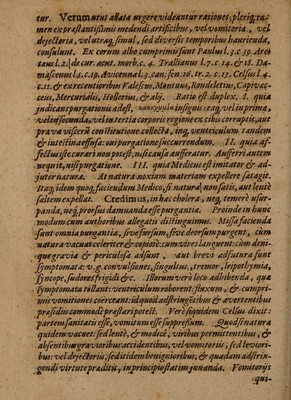 tur. Verum utut allata urgere videantur rationes; plerique tamen
men ex præstantißimis medendi artificibus, vel vomitoria, vel
dejectoria, vel utraq; simul, sed diversis temporibus haurienda,
consulunt. Ex eorum albo cumprimis sunt Paulus l. 3. c. 39. Are-
tæus l. 2. de cur. acut. morb. c. 4. Trallianus l. 7. c. 14. & 18. Da-
mascenus l. 5. c. 19. Avicenna l. 3. can. fen. 16. tr. 2. c. 13. Celsus l. 4.
c. 11. & ex recentioribus Valesius, Montuus, Rondeletius, Capivac-
ceus, Mercurialis, Hollerius, & alij. Ratio est duplex. I. quia
indicans purgationem adest, insignis: eaq; vel in prima,
vel in secunda, vel in tertia corporis regione ex cibis corruptis, aut
prava visceru constitutione collecta, inq; ventriculum tandem
& intestina effusa: cui purgationes succurrendum. II. quia af-
fectui ißi curari non potest, nisi causa afferatur. Auferri autem
nequit, nisi purgatione. III. quia Medicus est imitator & ad-
jutor naturæ. At natura noxiam materiam expellere satagit.
Itaq; idem quoq; faciendum Medico, si natura non satis, aut lente
saltem expellat. Credimus, in hac cholera, neq; temere usur-
panda, neq; prorsus damnanda esse purgantia. Proinde in hunc
modum cum authoribus allegatis distinguimus. Missa facienda
sunt omnia purgantia, sive sursum, sive deorsum purgent, cum
natura vacuat celeriter & copiose: cum vires languent: cum deni-
que gravia & periculosa adsunt, aut brevi adsutura sunt
symptomata: v. g. convulsiones, singultus, tremor, leipothymia,
syncope, sudores frigidi &c. Illorum vero loco adhibenda, quæ
symptomata tollant: ventriculum roborent: fluxum, & cumpri-
mis vomitiones coërceant: id quod adstringentibus & avertentibus
præsidiis commode præstari poterit. Verè siquidem Celsus dixit:
partem sanitatis esse, vomitum esse suppressum. Quod si natura
quidem vacuet: sed lente, & modice, viribus permittentibus, &
absentibus gravioribus accidentibus, vel vomitoriis, sed levioribus
bus: vel dejectoriis, sed itidem benignioribus, & quadam adstrin-
gendi virtute præditis, in principio statim juvanda. Vomitorijs
qui-